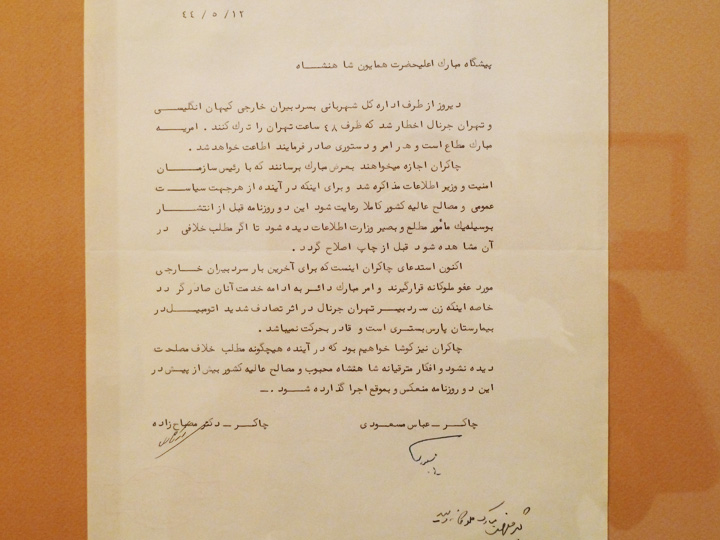 ۴۴ / ۵ / ۱۲
پیشگاه مبارك اعلیحضرت همایون شاهنشاه
دیروز از طرف اداره کل شهربانی بسردبیران خارجی کیهان انگلیسی
و تهران جرنال اخطار شد که ظرف ۴۸ ساعت تهران را ترك کنند . امریه
مبارك مطاع است و هر امر و دستوری صادر فرمایند اطاعت خواهد شد .
چاکران اجازه میخواهند بعرض مبارك برسانند که با رئیس سازمان
امنیت و وزیر اطلاعات مذاکره شد و برای اینکه در آینده از هرجهت سیاست
عمومی و مصالح عالیه کشور کاملا رعایت شود این دو روزنامه قبل از انتشار
بوسیلهیك مأمور مطلع و بصیر وزارت اطلاعات دیده شود تا اگر مطلب خلافی در
آن مشاهده شود قبل از چاپ اصلاح گردد .
اکنون استدعای چاکران اینست که برای آخرین بار سردبیران خارجی
مورد عفو ملوکانه قرارگیرند و امر مبارك دائر به ادامه خدمت آنان صادر گردد
خاصه اینکه زن سردبیر تهران جرنال در اثر تصادف شدید اتومبیل در
بیمارستان پارس بستری است و قادر بحرکت نمیباشد .
چاکران نیز کوشا خواهیم بود که در آینده هیچگونه مطلب خلاف مصلحت
دیده نشود و افکار مترقیانه شاهنشاه محبوب و مصالح عالیه کشور بیش از پیش در
این دو روزنامه منعکس و بموقع اجرا گذارده شود . ــ
چاکر ــ عباس مسعودی چاکر ــ دکتر مصباح زاده